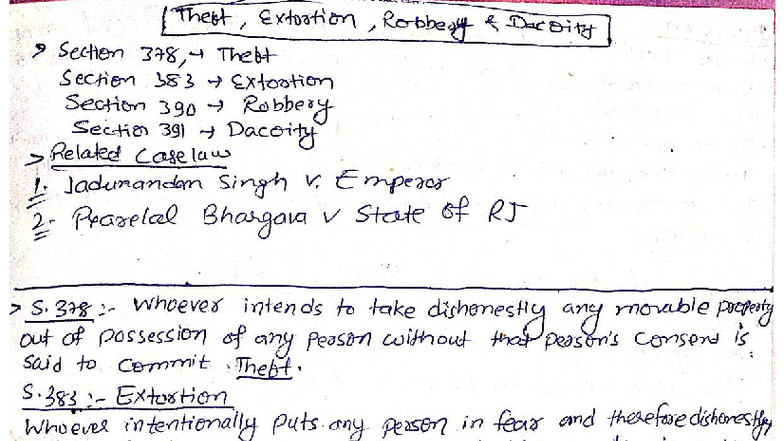 Theft, Extortion, Robbery & Dacoity
> Section 378, → Theft
Section 383 → Extortion
Section 390 → Robbery
Section 391 → Dacoity
> Related Case law
1. Jadunandan Singh v. Emperor
2. Pearelal Bhargava v State of RJ
> S. 378 :- Whoever intends to take dishonestly any movable property
out of possession of any person without that person's consent is
said to commit Theft.
S. 383 :- Extortion
Whoever intentionally puts any person in fear and therefore dishonestly